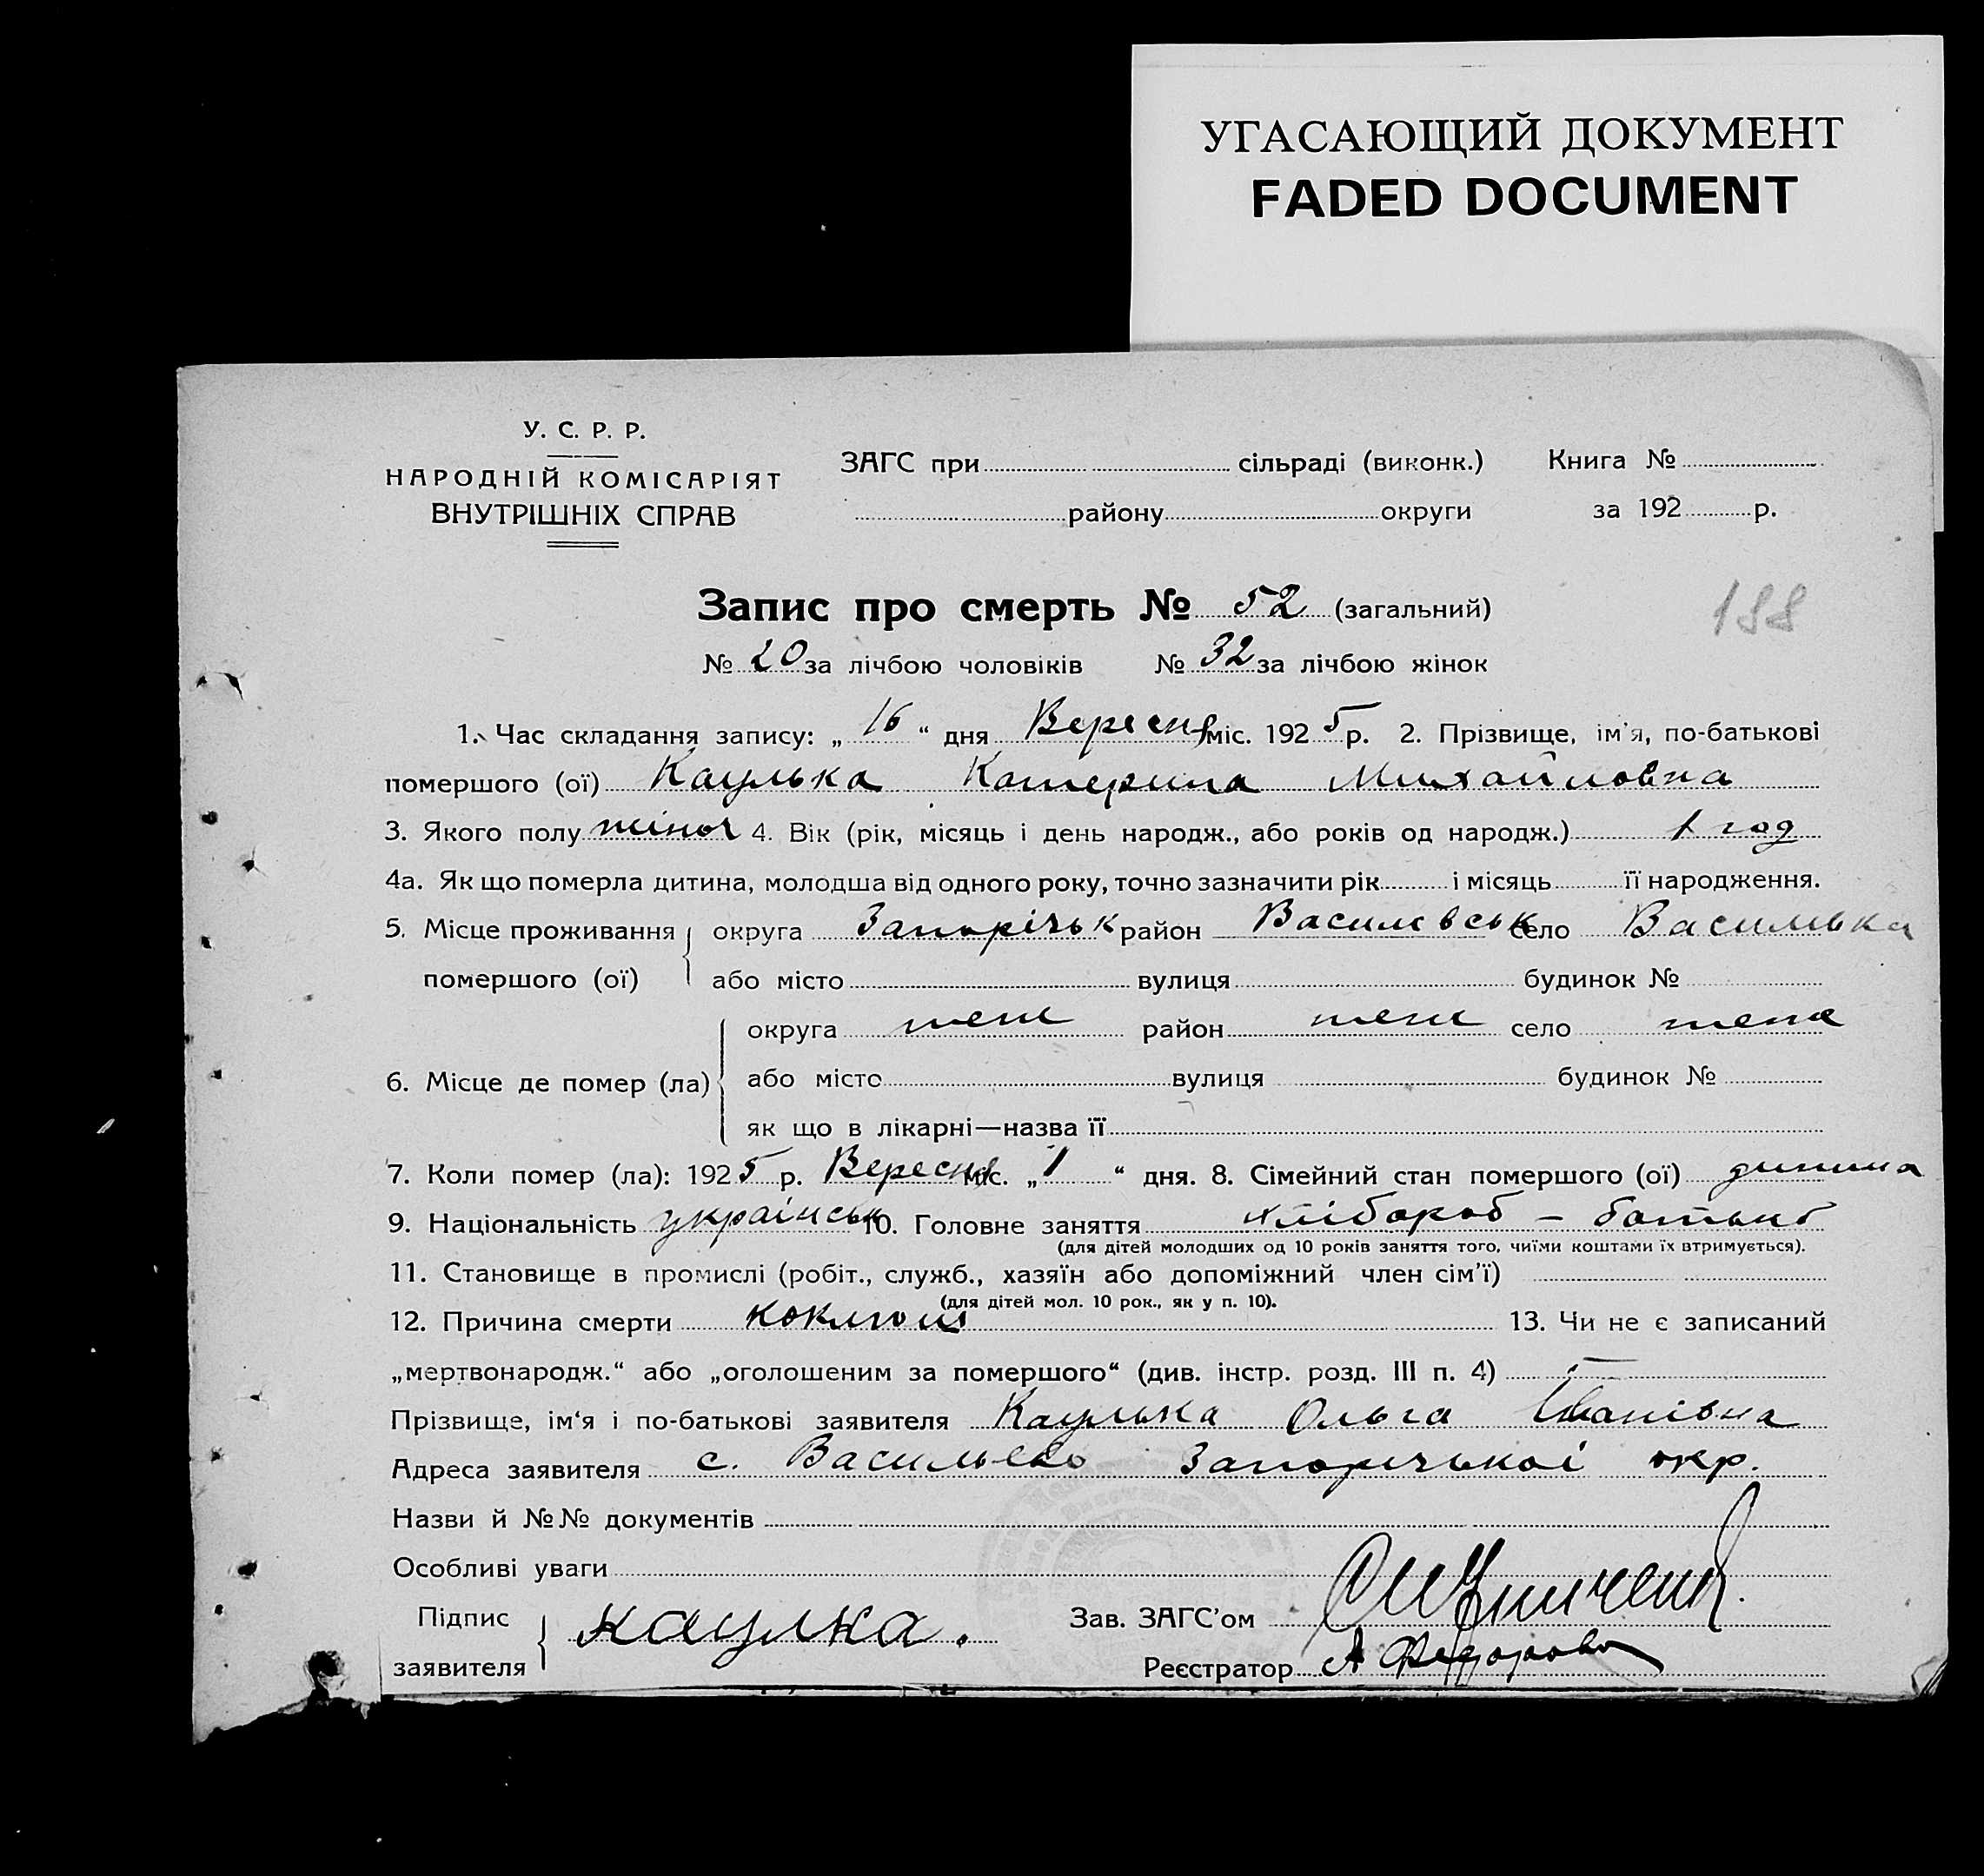 УГАСАЮЩИЙ ДОКУМЕНТ
FADED DOCUMENT
У. С. Р. Р.
НАРОДНІЙ КОМІСАРІЯТ
ВНУТРІШНІХ СПРАВ
ЗАГС при сільраді (виконк.) Книга №
району округи за 192 р.
Запис про смерть № 52 (загальний)
188
№ 20 за лічбою чоловіків № 32 за лічбою жінок
1. Час складання запису: „16“ дня Вересня міс. 1925 р. 2. Прізвище, ім'я, по-батькові
помершого (ої) Каулька Катерина Михайловна
3. Якого полу жіноч 4. Вік (рік, місяць і день народж., або років од народж.) 1 год
4а. Як що померла дитина, молодша від одного року, точно зазначити рік і місяць її народження.
5. Місце проживання помершого (ої) округа Запорічьк район Василівськ село Василька
або місто вулиця будинок №
6. Місце де помер (ла) округа теж район теж село теж
або місто вулиця будинок №
як що в лікарні—назва її
7. Коли помер (ла): 1925 р. Вересня міс. „1“ дня. 8. Сімейний стан помершого (ої) дитина
9. Національність українськ 10. Головне заняття хлібороб – батько
(для дітей молодших од 10 років заняття того, чиїми коштами їх втримується).
11. Становище в промислі (робіт., служб., хазяїн або допоміжний член сім'ї)
(для дітей мол. 10 рок., як у п. 10).
12. Причина смерти коклюш 13. Чи не є записаний
„мертвонародж.“ або „оголошеним за помершого“ (див. інстр. розд. III п. 4) –
Прізвище, ім'я і по-батькові заявителя Каулька Ольга Іванівна
Адреса заявителя с. Запорічькоі окр.
Назви й №№ документів
Особливі уваги
Підпис заявителя каулка. Зав. ЗАГС'ом
Реєстратор А Федорова